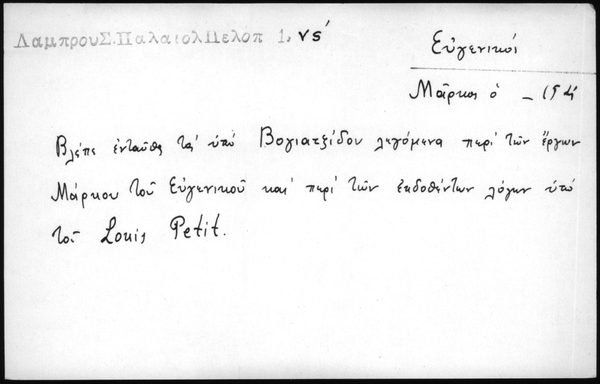 ΛαμπρουΣ.ΠαλαιολΠελοπ 1, νς΄
Εὐγενικοί
Μᾶρκος ὁ
Βλέπε ἐνταῦθα τὰ ὑπὸ Βογιατζίδου λεγόμενα περὶ τῶν ἔργων
Μάρκου τοῦ Εὐγενικοῦ καὶ περὶ τῶν ἐκδοθέντων λόγων ὑπὸ
τοῦ Louis Petit.